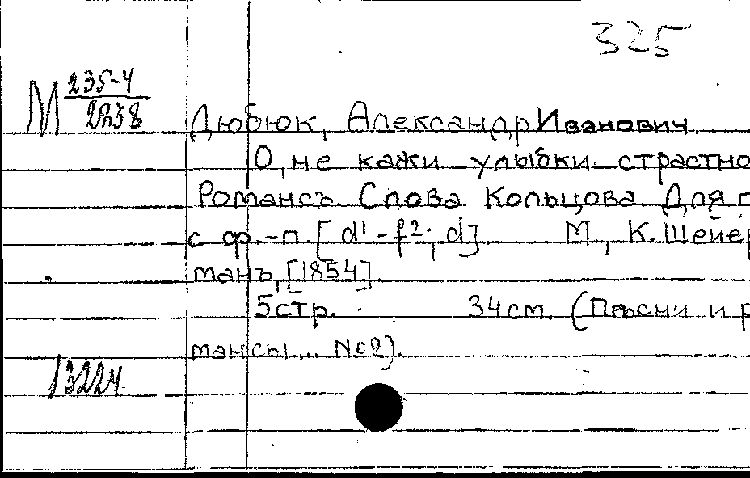 325
М 235-4
2238
Дюбюк, Александр Иванович
О, не кажи улыбки страстно
Романсъ Слова Кольцова Для г
с ф.-п. [d¹-f²; d] М, К. Шейер
манъ, [1854].
5стр. 34см. (Пѣсни и р
мансы... №2).
13224